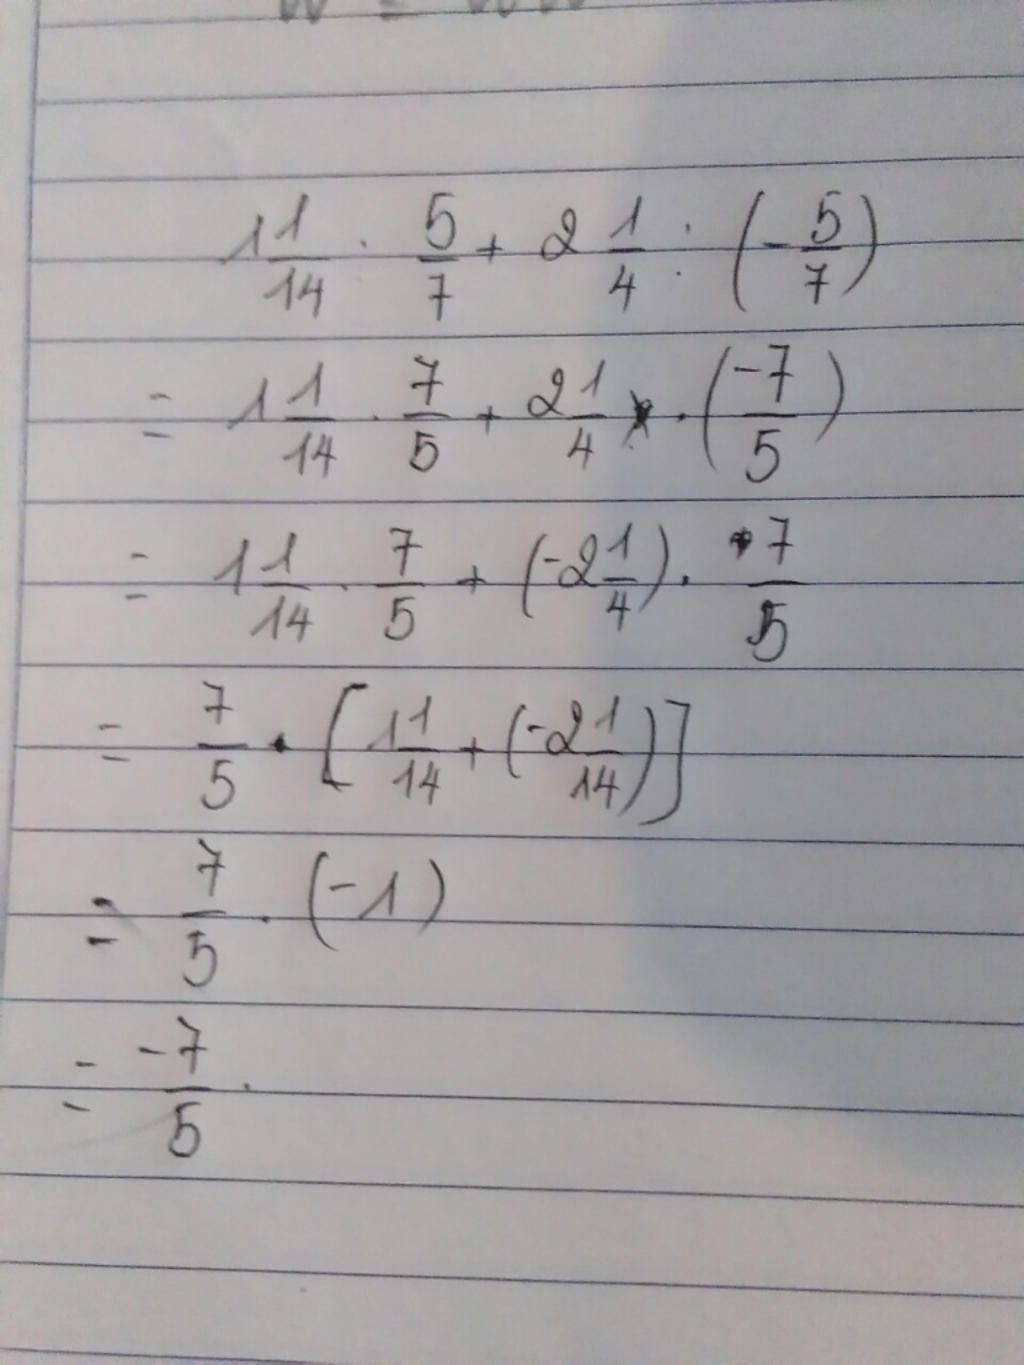 1 1/14 · 5/7 + 2 1/4 : (- 5/7)
= 1 1/14 · 7/5 + 2 1/4 · (-7/5)
= 1 1/14 · 7/5 + (-2 1/4) · 7/5
= 7/5 · [1 1/14 + (-2 1/14)]
= 7/5 · (-1)
= -7/5 .